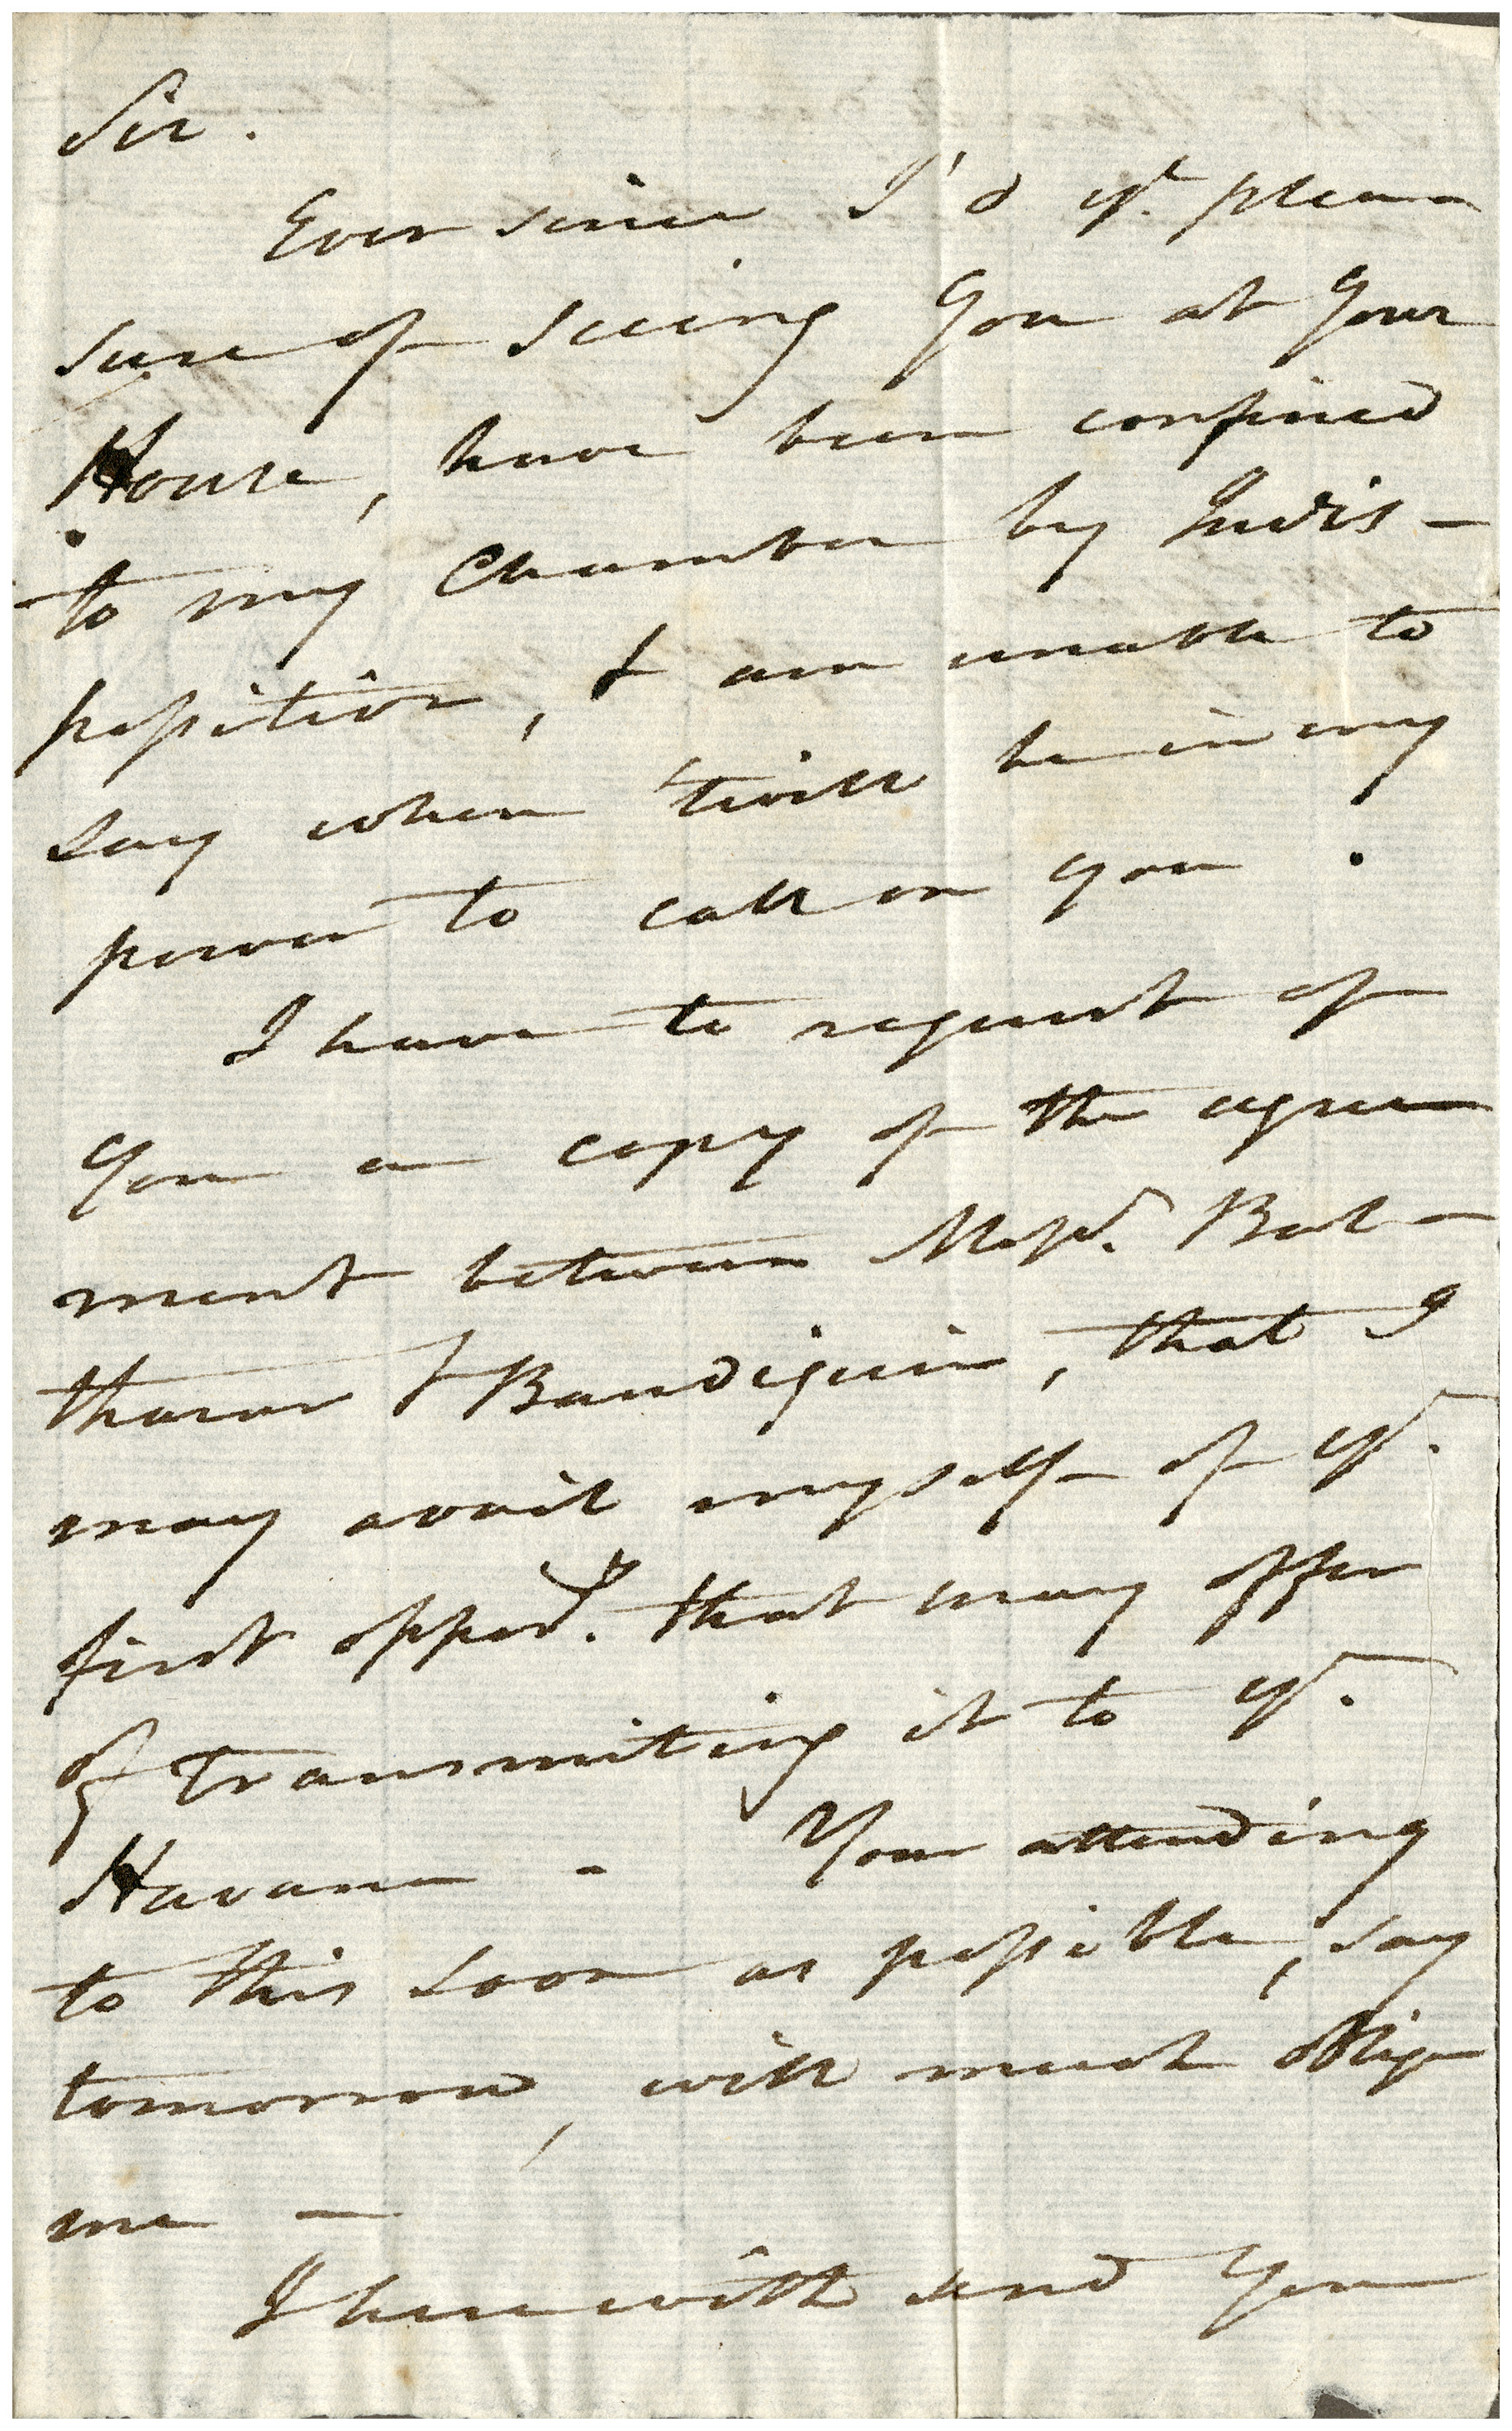 Sir.
Ever since I'd ye. plea
sure of seeing You at Your
House, have been confined
to my Chamber by Indis-
position, & am unable to
say when 'twill be in my
power to call on you.
I have to request of
You a copy of the agree
ment between Messrs. Bal-
tharar & Baudiguin, that I
may avail myself of ye.
first oppory. that may offer
of transmiting it to ye.
Havana - Your attending
to this soon as possible, say
tomorrow, will much oblige
me -
I herewith send You